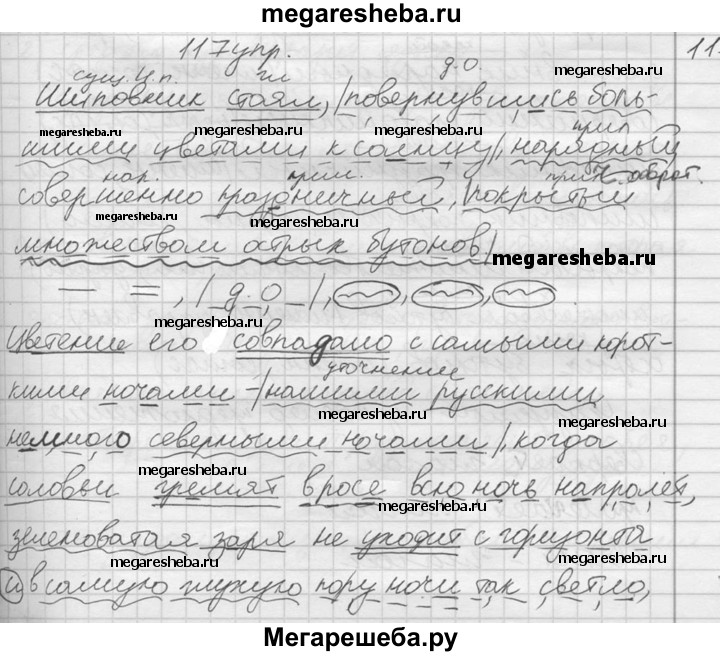 megaresheba.ru
117 упр. 11
сущ. И.п. гл д.о.
Шиповник стоял, |повернувшись боль-
megaresheba.ru
megaresheba.ru megaresheba.ru megaresheba.ru
прил
шими цветами к солнцу|, нарядный
megaresheba.ru
нар. прил. прич. оборот.
совершенно праздничный, |покрытый
megaresheba.ru megaresheba.ru
множеством острых бутонов|
megaresheba.ru
— =, |д.о|, , ,
megaresheba.ru
Цветение его совпадало с самыми корот-
megaresheba.ru
уточнение
кими ночами – |нашими русскими
megaresheba.ru
немного северными ночами|, когда
megaresheba.ru
соловьи гремят в росе всю ночь напролёт,
megaresheba.ru
зеленоватая заря не уходит с горизонта
megaresheba.ru megaresheba.ru
и в самую глухую пору ночи так светло,
Мегарешеба.ру